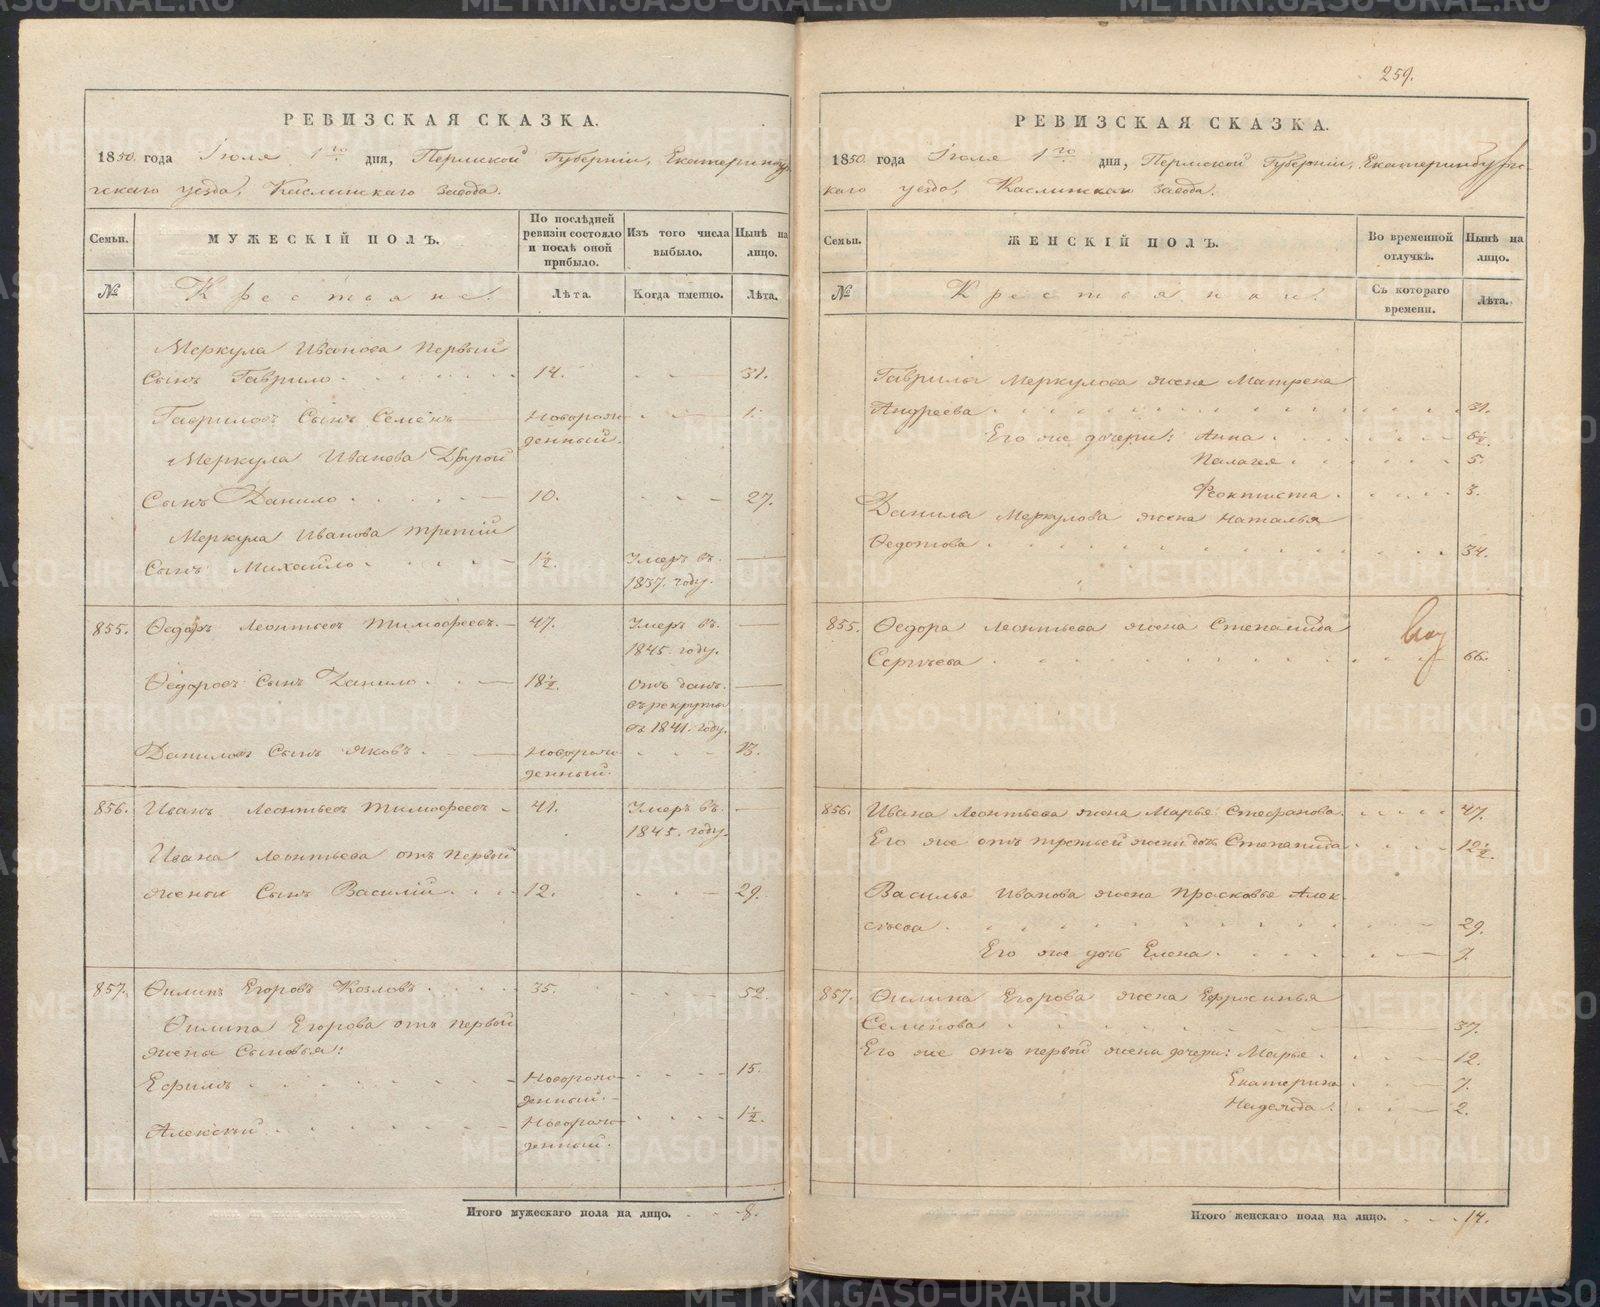 РЕВИЗСКАЯ СКАЗКА.
1850. года Іюля 1го дня, Пермской Губерніи, Екатеринбур
гскаго уезда, Каслинскаго завода.
Семьи.
МУЖЕСКІЙ ПОЛЪ.
По послѣдней ревизіи состояло и послѣ оной прибыло.
Изъ того числа выбыло.
Нынѣ на лицо.
№
Крестьяне.
Лѣта.
Когда именно.
Лѣта.
Меркула Иванова Первый
Сынъ Гаврило. 14. 31.
Гавриловъ Сынъ Семенъ Новорож 1.
денный.
Меркула Иванова Другой
Сынъ Данило 10. 27.
Меркула Иванова третій
Сынъ Михайло 1½. Умеръ въ
1837. году.
855. Ѳедоръ Леонтьевъ Тимофеевъ. 47. Умеръ въ
1845. году.
Ѳедоровъ Сынъ Данило 18½. Отъ данъ
въ рекруты
въ 1841. году.
Даниловъ Сынъ Яковъ Новорож 13.
денный.
856. Иванъ Леонтьевъ Тимофеевъ 41. Умеръ въ
1845. году.
Ивана Леонтьева отъ первой
жены Сынъ Василій 12. 29.
857. Филипъ Егоровъ Козловъ 35. 52.
Филипа Егорова отъ первой
жены Сыновья:
Ефимъ Новорож 15.
денный.
Алексѣй Новорож 1½.
денный.
Итого мужескаго пола на лицо. 8.
259.
РЕВИЗСКАЯ СКАЗКА.
1850 года Іюля 1го дня, Пермской Губерніи, Екатеринбургс
каго уезда, Каслинскаго завода.
Семьи.
ЖЕНСКІЙ ПОЛЪ.
Во временной отлучкѣ.
Нынѣ на лицо.
№
Крестьянки.
Съ котораго времени.
Лѣта.
Гаврилы Меркулова жена Матрена
Андреева 31.
Его же дочери: Анна 6½.
Палагея 5.
Феоктиста 3.
Данила Меркулова жена Наталья
Федотова 34.
855. Ѳедора Леонтьева жена Степанида
Сергѣева 66.
856. Ивана Леонтьева жена Марья Стефанова. 47.
Его же отъ третьей жены дочь Степанида 12½.
Василья Иванова жена Прасковья Алек
сѣева 29.
Его же дочь Елена 7.
857. Филипа Егорова жена Ефросинья
Семенова 37.
Его же отъ первой жены дочери: Марья 12.
Екатерина 7.
Надежда 2.
Итого женскаго пола на лицо. 14.
METRIKI.GASO-URAL.RU